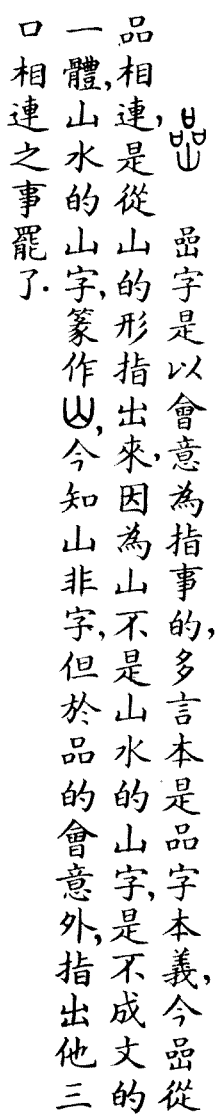 喦 喦字是以會意為指事的,多言本是品字本義,今喦從
品相連,是從山的形指出來,因為山不是山水的山字,是不成文的
一體,山水的山字,篆作山,今知山非字,但於品的會意外,指出他三
口相連之事罷了.